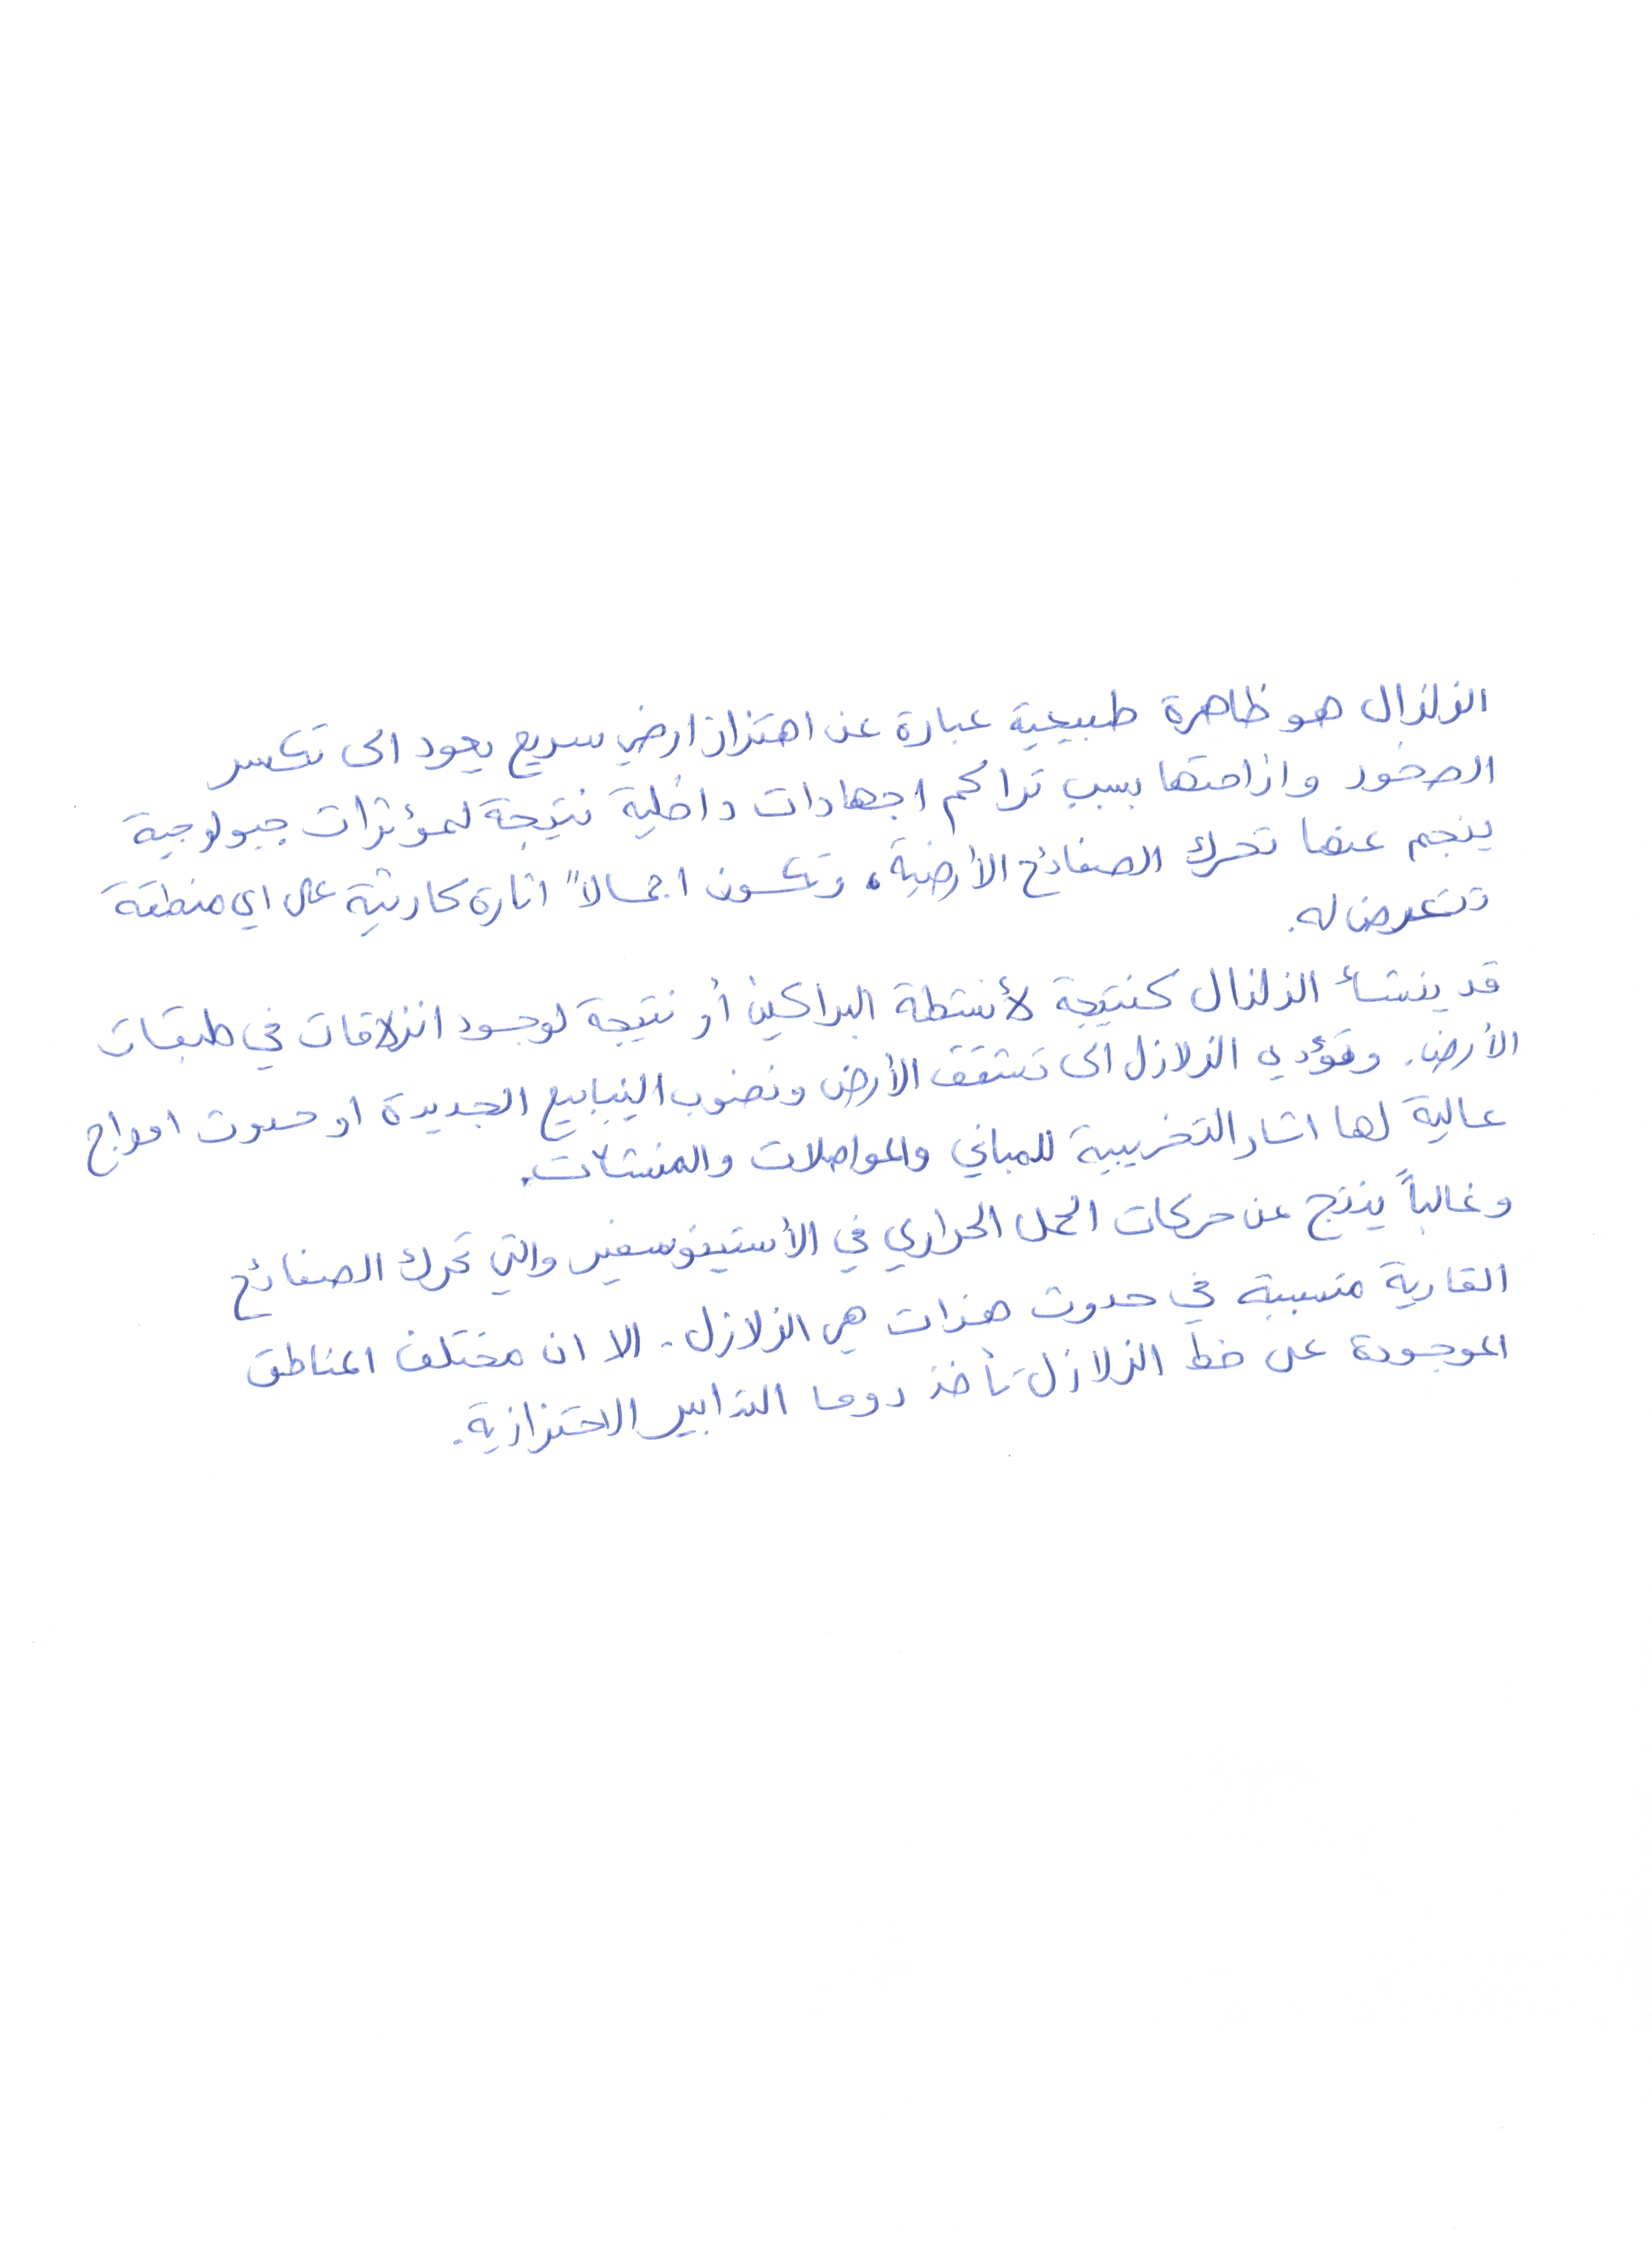 الزلزال هو ظاهرة طبيعية عبارة عن اهتزاز ارضي سريع يعود الى تكسر
الصخور وازاحتها بسبب تراكم اجهادات داخلية نتيجة لمؤثرات جيولوجية
ينجم عنها تحرك الصفائح الأرضية، وتكون اجمالاً اثارة كارثية على اي منطقة
تتعرض له.
قد ينشأ الزلزال كنتيجة لأنشطة البراكين أو نتيجة لوجود انزلاقات في طبقات
الأرض. وتؤدي الزلازل الى تشقق الأرض ونضوب الينابيع الجديدة او حدوث امواج
عالية لها اشار التخريبية للمباني والمواصلات والمنشآت.
وغالباً ينتج عن حركات الحمل الحراري في الأستينوسفير والتي تحرك الصفائح
القارية متسببة في حدوث هزات هي الزلازل. الا ان مختلف المناطق
الموجودة على خط الزلازل تأخذ دوما التدابير الاحتزازية.